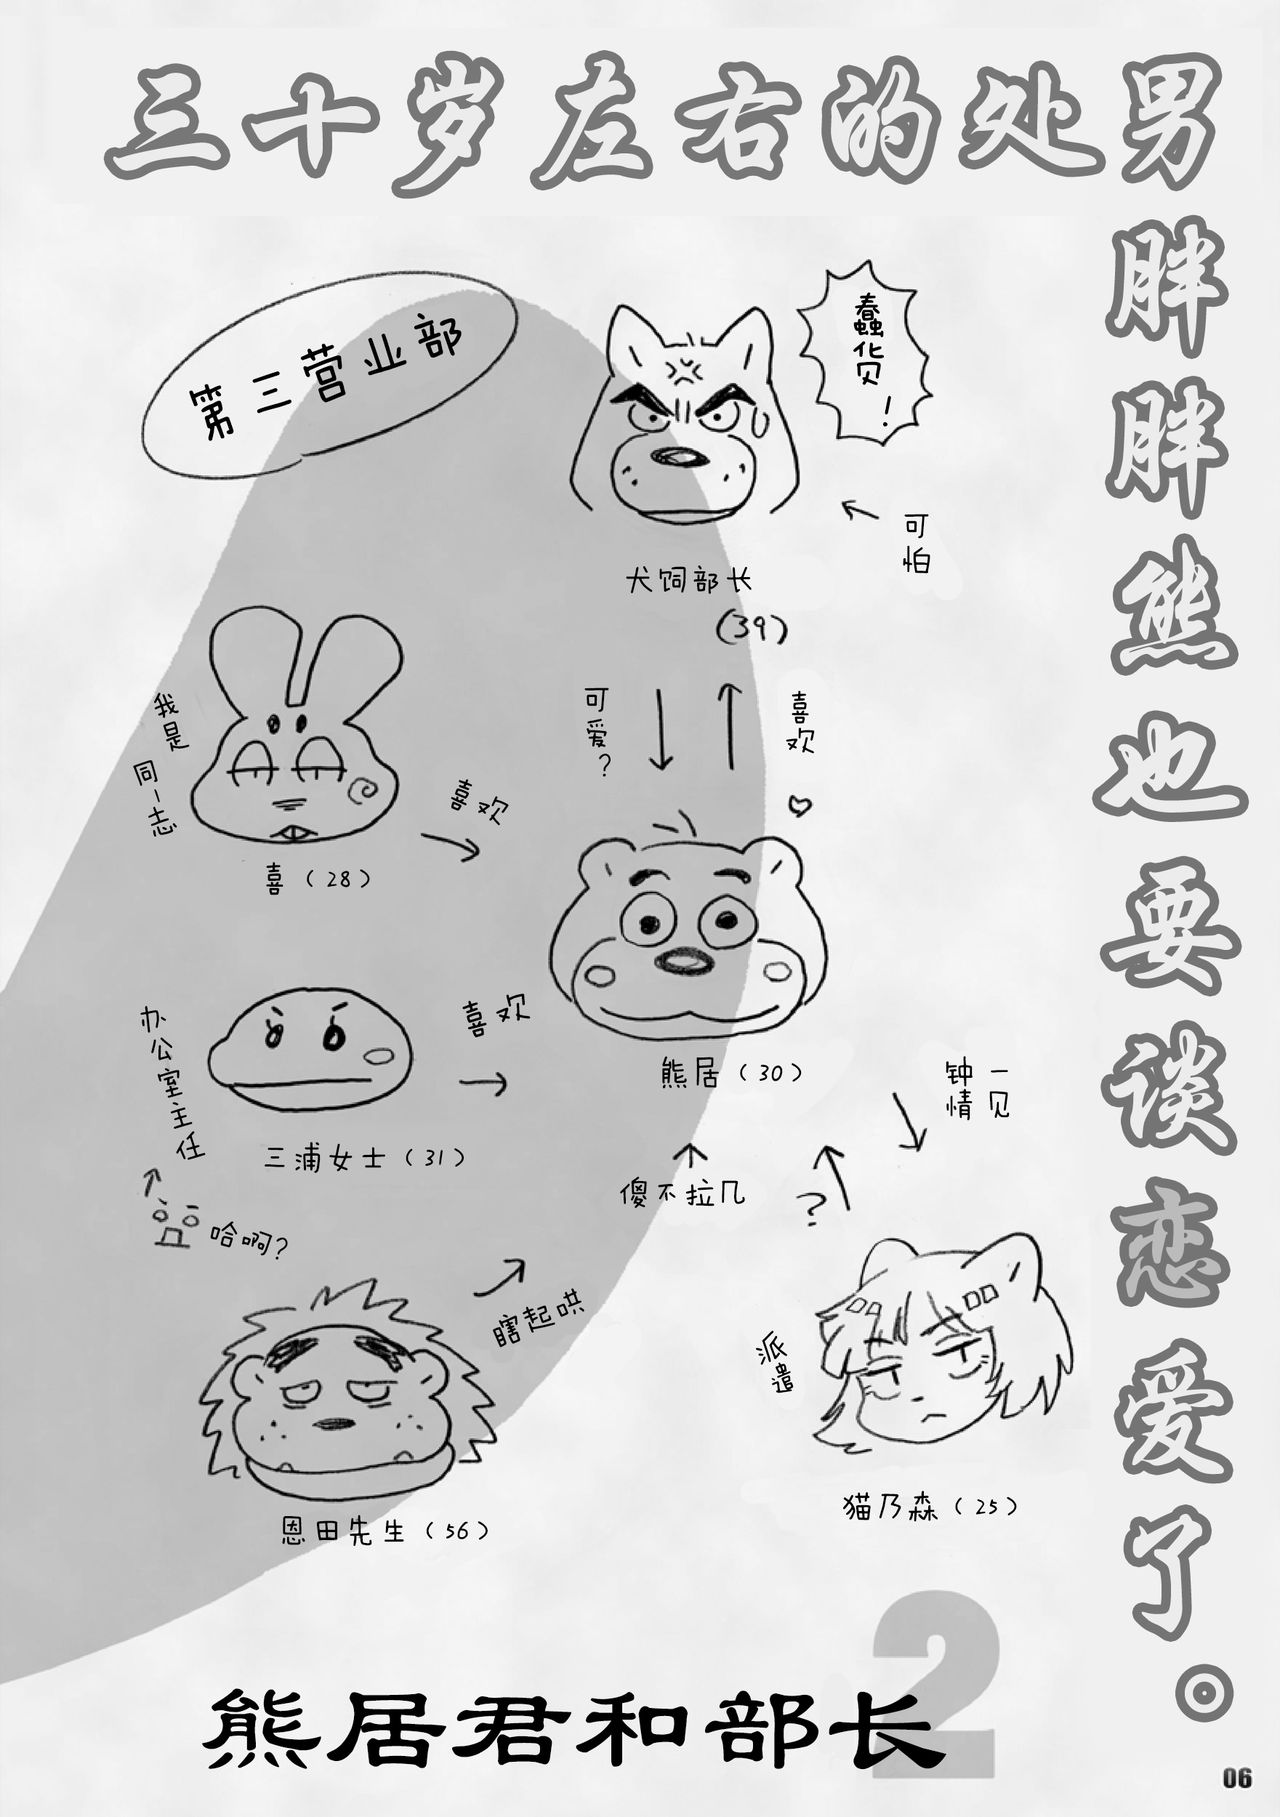 三十岁左右的处男
胖胖熊也要谈恋爱了。
第三营业部
蠢货！
可怕
犬饲部长
（39）
可爱？
喜欢
我是
同志
喜欢
喜（28）
熊居（30）
喜欢
办公室主任
三浦女士（31）
哈啊？
傻不拉几
一见
钟情
？
瞎起哄
派遣
恩田先生（56）
猫乃森（25）
2
熊居君和部长
06